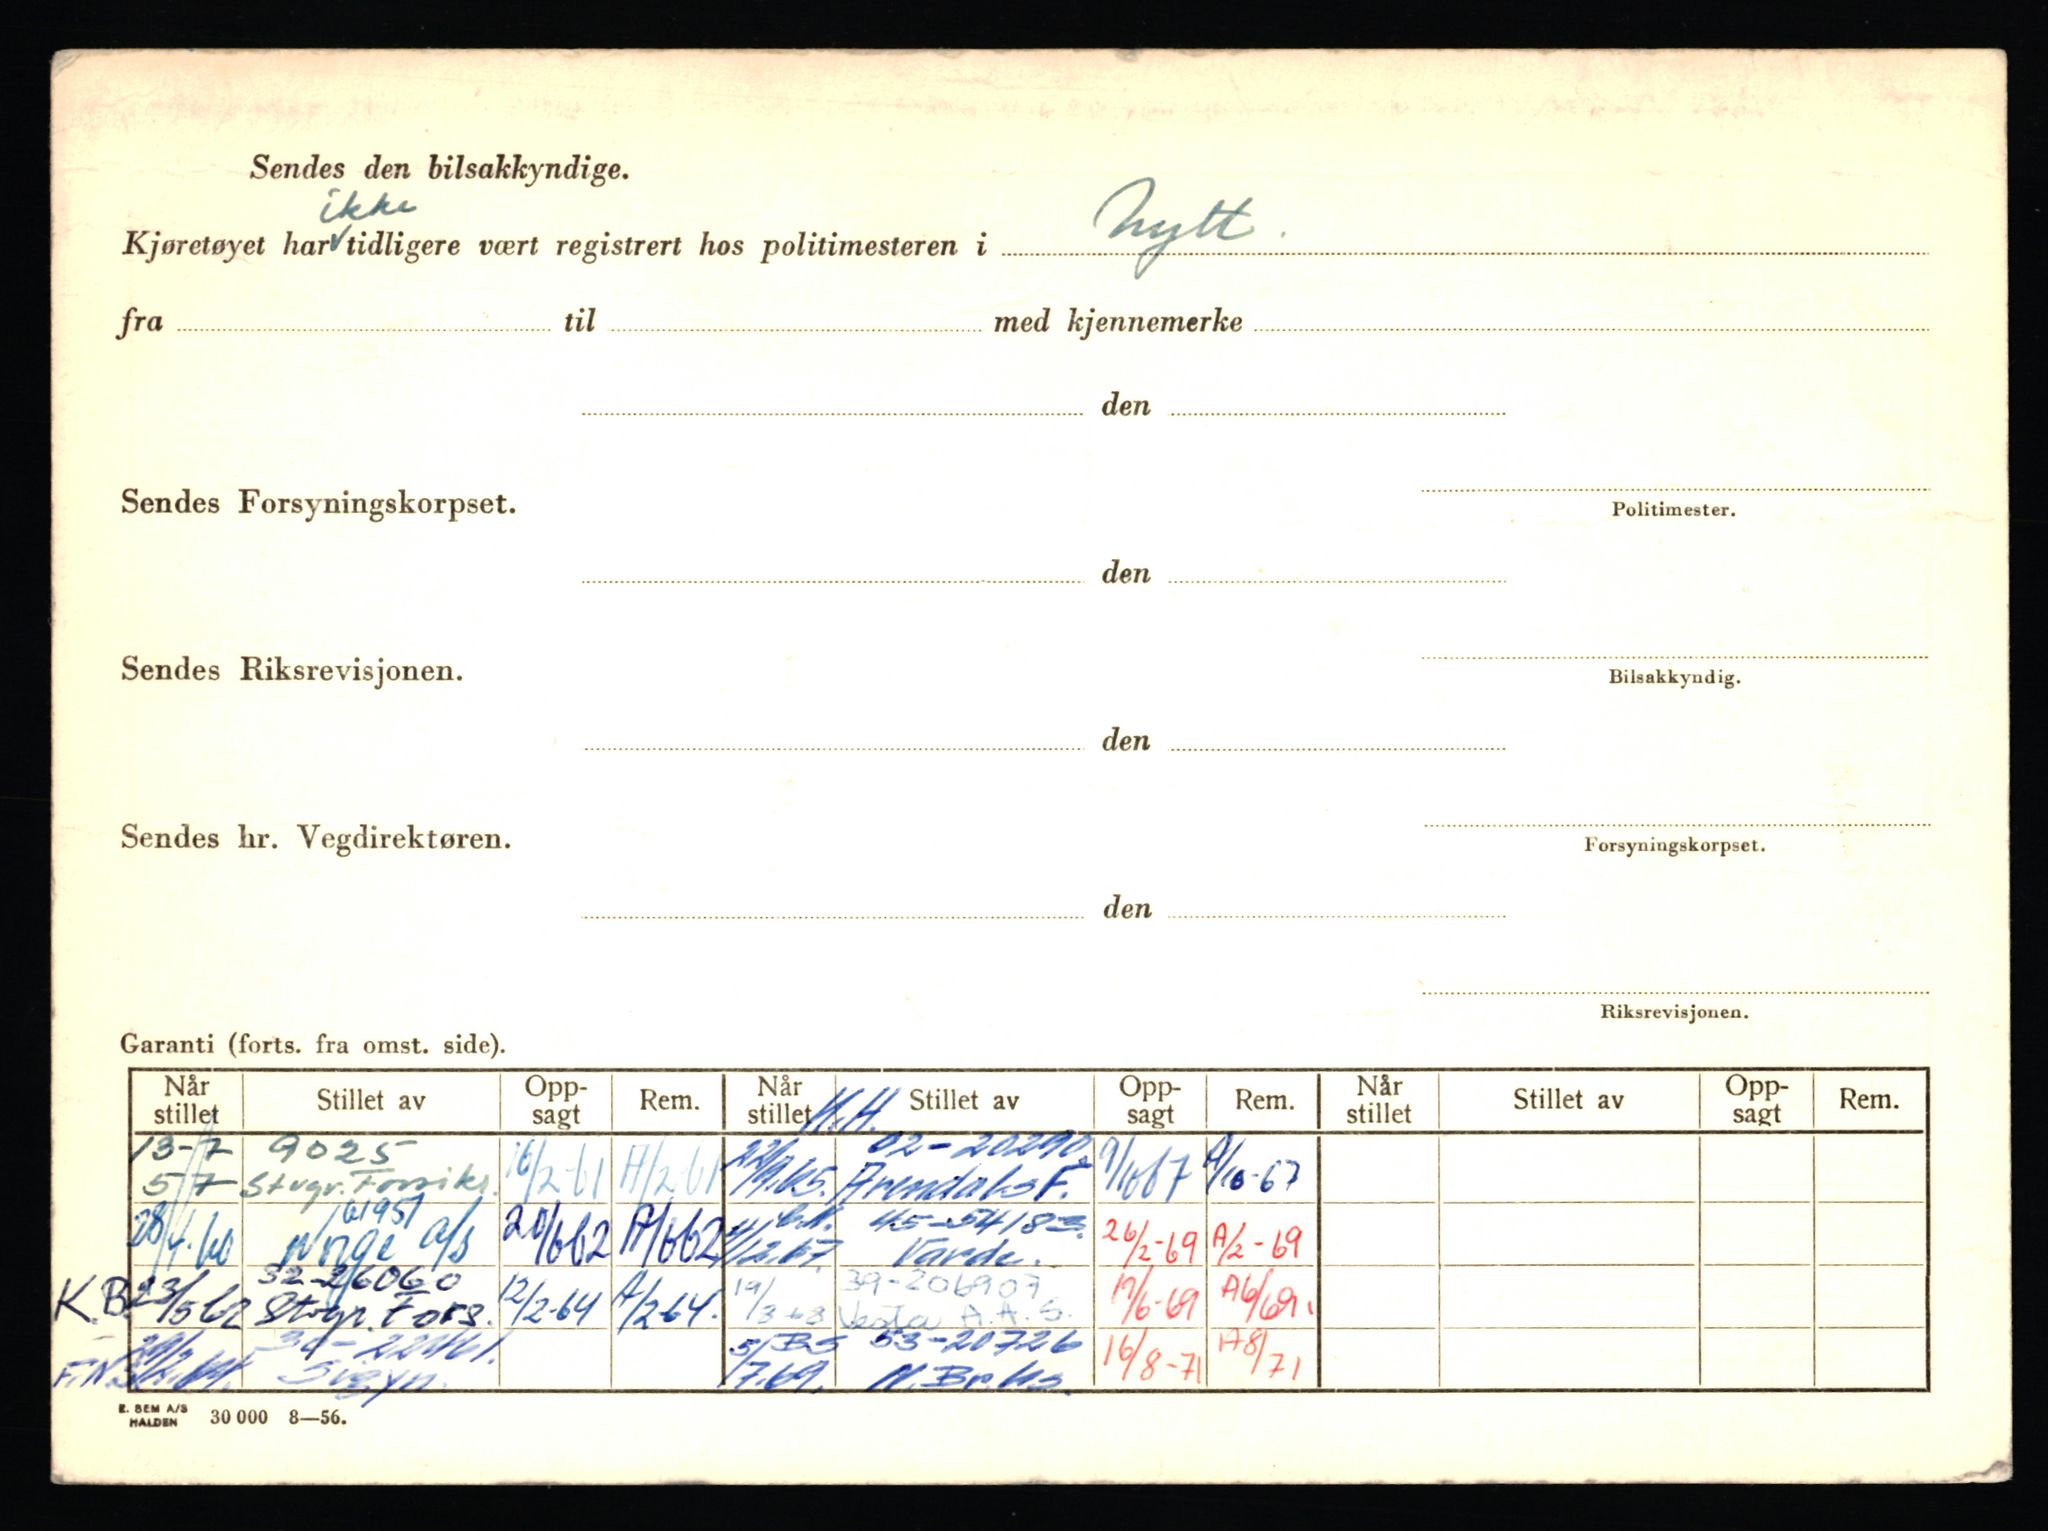 Sendes den bilsakkyndige.
ikke
Kjøretøyet har tidligere vært registrert hos politimesteren i Nytt.
fra til med kjennemerke
den
Sendes Forsyningskorpset.
Politimester.
den
Sendes Riksrevisjonen.
Bilsakkyndig.
den
Sendes hr. Vegdirektøren.
Forsyningskorpset.
den
Riksrevisjonen.
Garanti (forts. fra omst. side).
Når stillet Stillet av Opp-sagt Rem. Når stillet Stillet av Opp-sagt Rem. Når stillet Stillet av Opp-sagt Rem.
13-7 9025 16/2-61 A/2-61 02-20290
57 Stvgr. Forsikr. Arendals F. A/10-67
28/4.60 61951 45-54183 26/2-69 A/2-69
Norge a/s Varde.
K.B. 23/5 62 32-26060 12/2-64 A/2-64. 19/3-68 39-206907 17/6-69 A6/69.
Stvgr. Fors. Vesta A.A.S.
F.N. 5/7.69. BS 53-20726 16/8-71 A8/71
Sigyn. N.Br.ks.
E. SEM A/S
HALDEN 30 000 8—56.